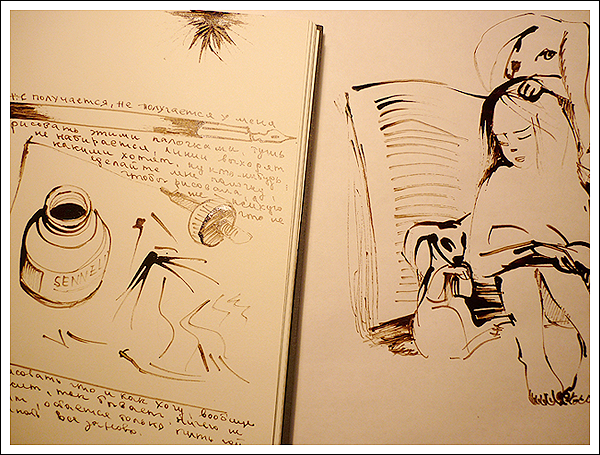 не получается, не получается у меня
рисовать этими палочками тушь
не набирается, линии выходят
какими хотят. ну кто-нибудь!
сделайте мне палочку,
чтобы рисовала
не
что не
SENNELI
рисовать что и как хочу! вообще
так бывает
остается только ничего не
заново. пить